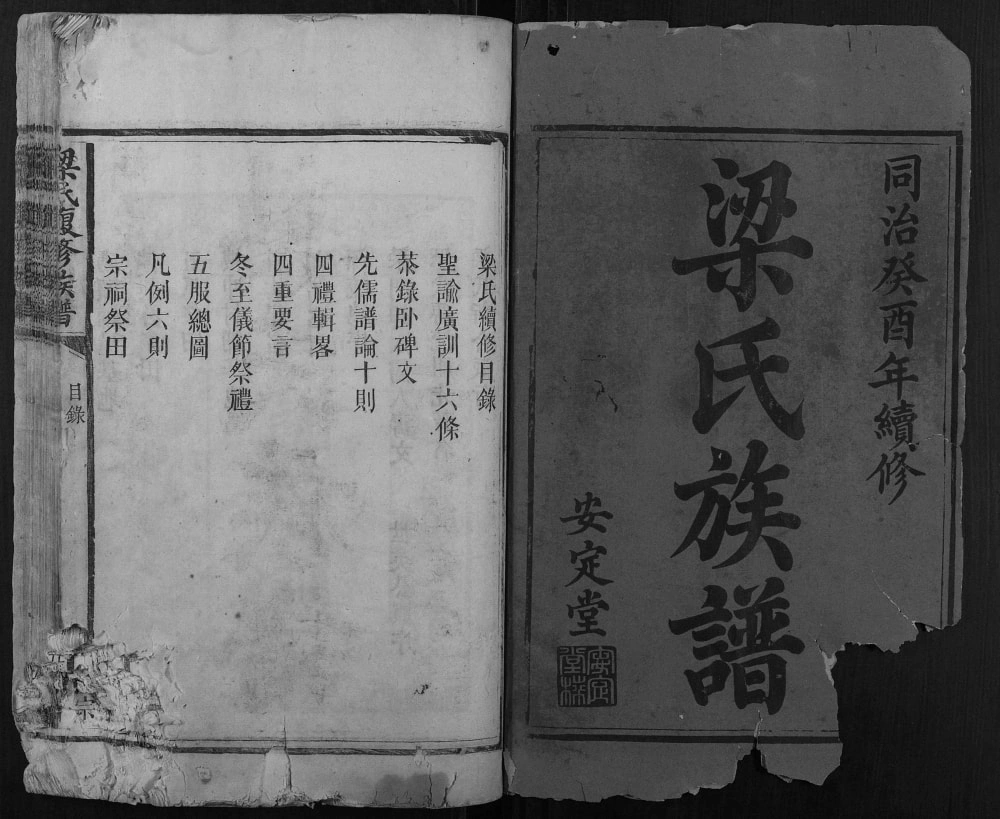 同治癸酉年續修
梁氏族譜
安定堂
梁氏續修目錄
聖諭廣訓十六條
恭錄卧碑文
先儒譜論十則
四禮輯畧
四重要言
冬至儀節祭禮
五服總圖
凡例六則
宗祠祭田
梁氏復修族譜
目錄
宗